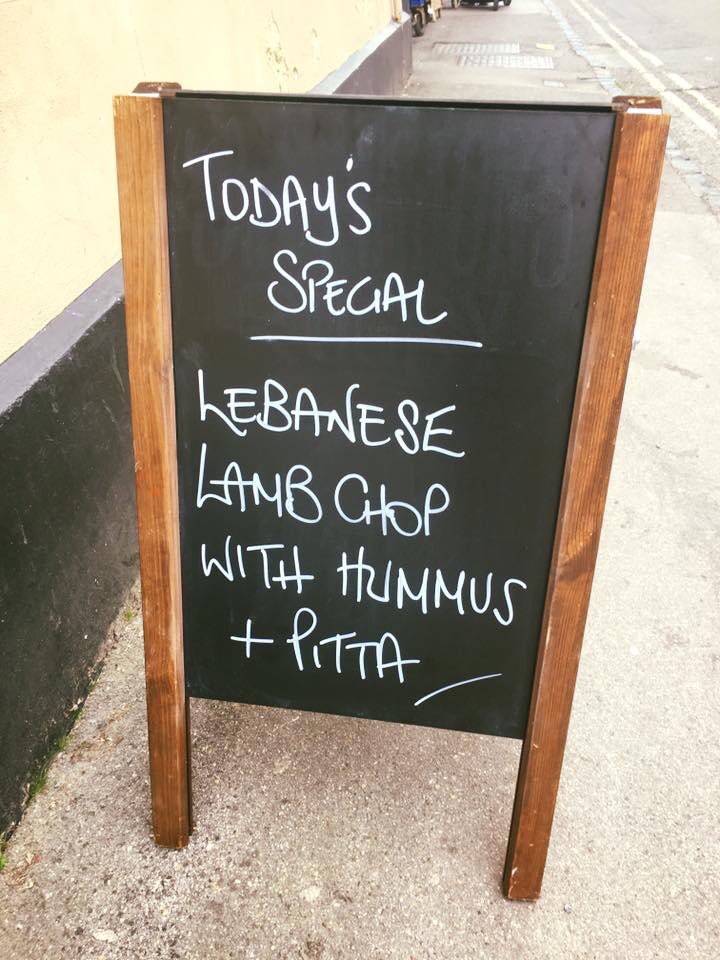 TODAY'S
SPECIAL
LEBANESE
LAMB CHOP
WITH HUMMUS
+ PITTA